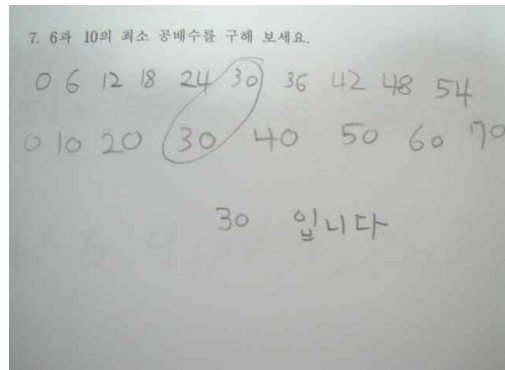 7. 6과 10의 최소 공배수를 구해 보세요.
0 6 12 18 24 30 36 42 48 54
0 10 20 30 40 50 60 70
30 입니다